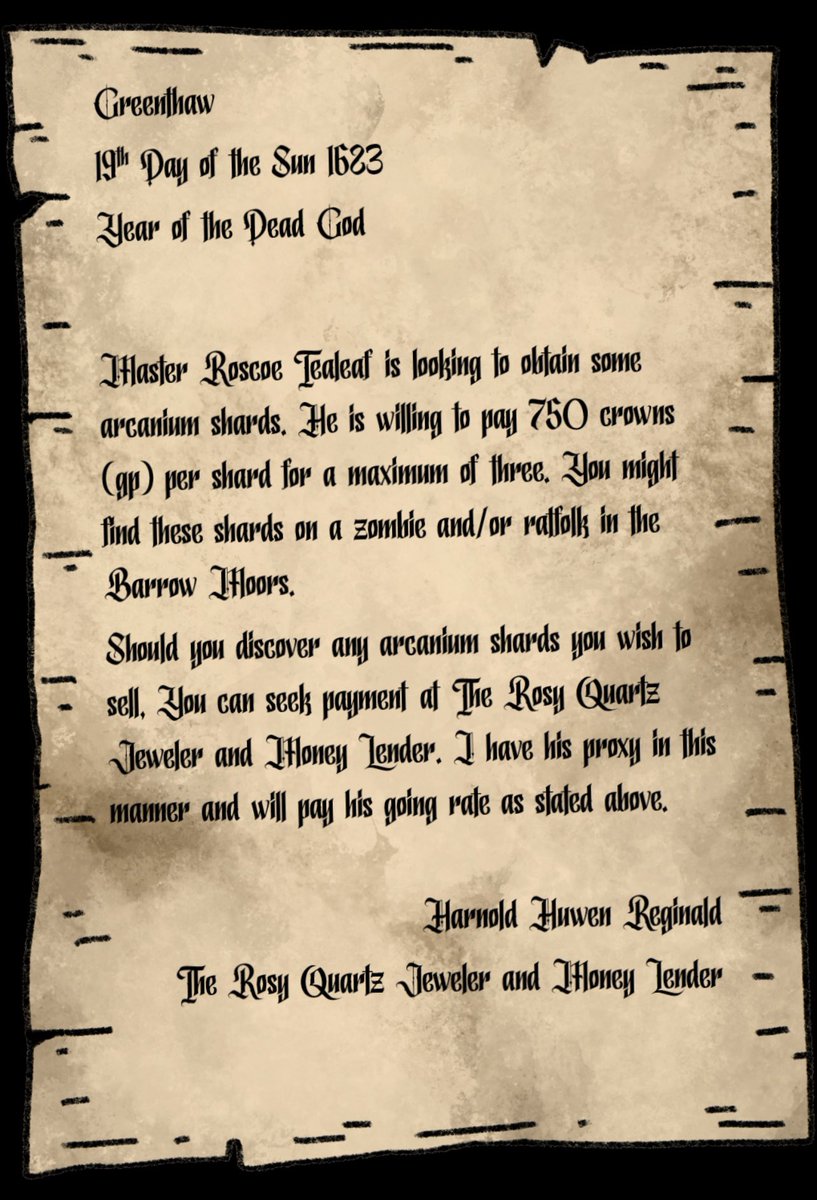 Greenthaw
19th Day of the Sun 1623
Year of the Dead God
Master Roscoe Tealeaf is looking to obtain some
arcanium shards. He is willing to pay 750 crowns
(gp) per shard for a maximum of three. You might
find these shards on a zombie and/or ratfolk in the
Barrow Moors.
Should you discover any arcanium shards you wish to
sell, You can seek payment at The Rosy Quartz
Jeweler and Money Lender. I have his proxy in this
manner and will pay his going rate as stated above.
Harnold Huwen Reginald
The Rosy Quartz Jeweler and Money Lender